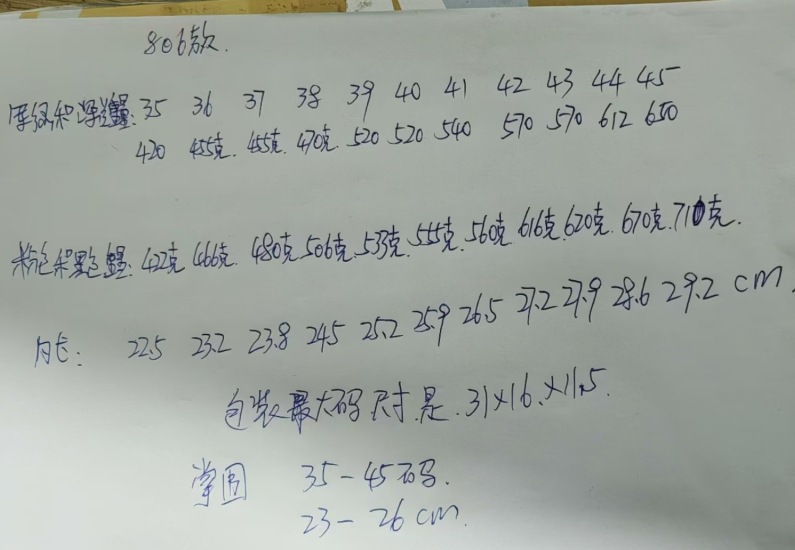 806款.
35 36 37 38 39 40 41 42 43 44 45
420 455克. 455克. 470克. 520 520 540 570 570 612 650
粉色和黑色重量: 422克 466克. 480克 506克. 533克. 555克. 560克. 616克. 620克. 670克. 710克.
内长: 22.5 23.2 23.8 24.5 25.2 25.9 26.5 27.2 27.9 28.6 29.2 cm.
包装最大码尺寸是.31×16.×11.5.
掌围 35-45码.
23-26cm.